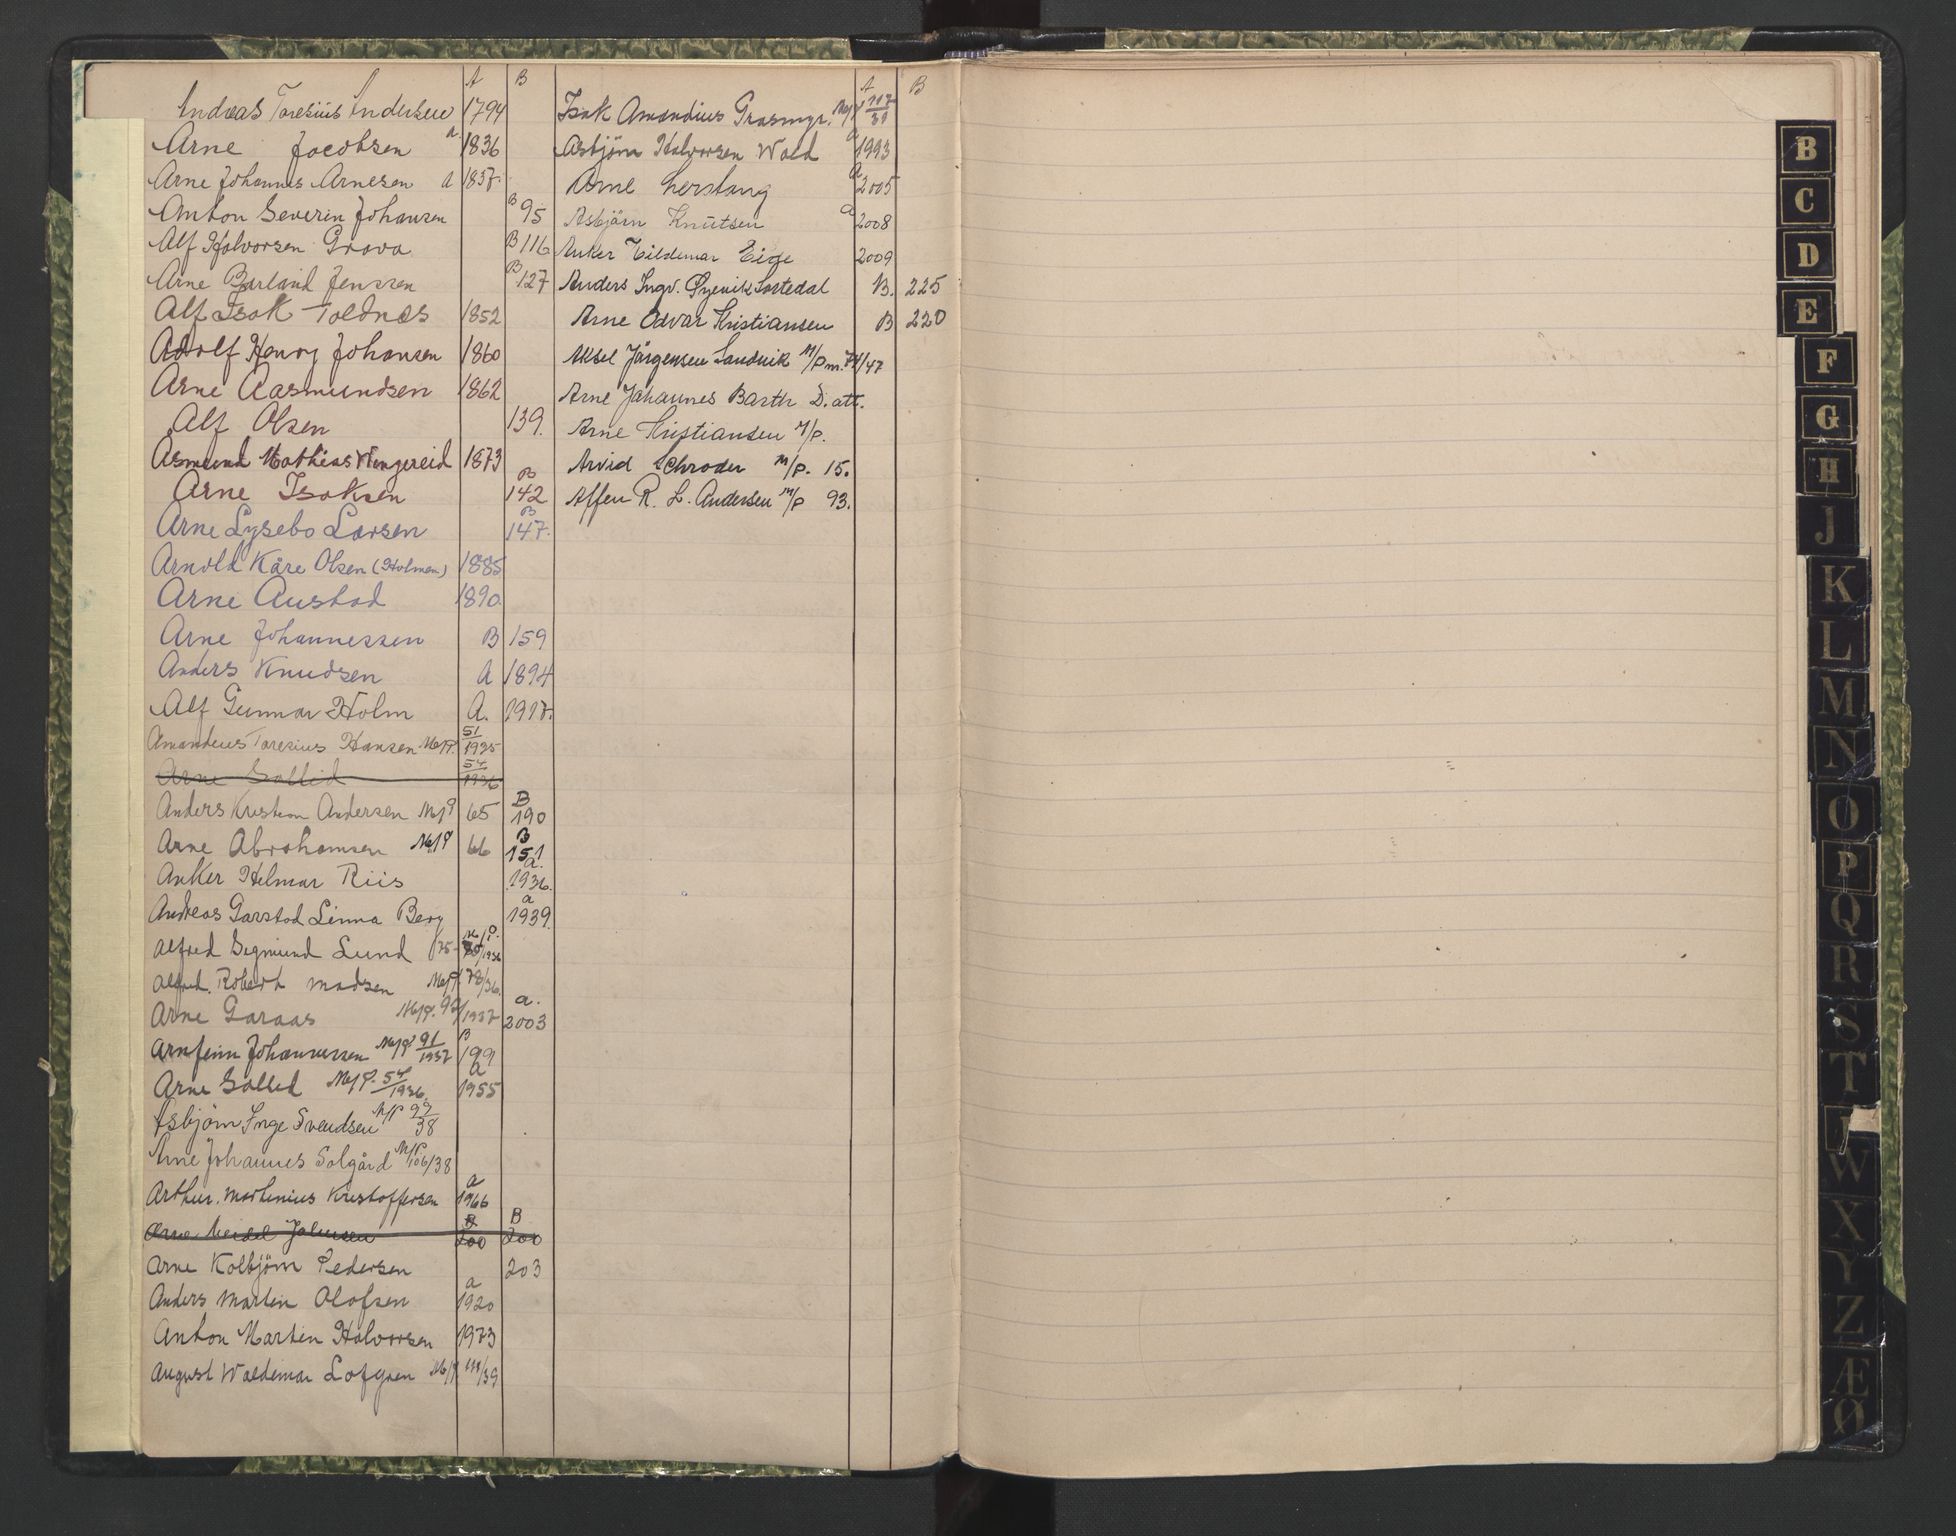 A B
Andreas Taresius Andersen 1794
Arne Jacobsen a 1836
Arne Johannes Arnesen a 1837.
Anton Severin Johansen B 95
Alf Halvorsen Grava B 116
Arne Barland Jenssen B 127
Alf Isak Toldnes 1852
Adolf Henry Johansen 1860
Arne Aasmundsen 1862
Alf Olsen 139.
Asmund Mathias Vengereid 1873
Arne Isaksen B 142
Arne Lysebo Larsen B 147.
Arnold Kåre Olsen (Holmen) 1885
Arne Austad 1890.
Arne Johannessen B 159
Anders Knudsen A 1894
Alf Gunnar Holm A. 1917.
Amandeus Taresius Hansen M/P. 51/1935
Arne Sollid 54/1936
Anders Kristian Andersen M/P 65 B 190
Arne Abrahamsen M/P 66 B 151
Anker Helmar Riis a. 1936.
Andreas Garstad Linna Berg a 1939.
Alfred Sigmund Lund M/P. /1936
Alfred. Robert Madsen M/P. 78/36.
Arne Garaas M/P. 92/1937 a. 2003
Arnfinn Johannessen M/P 91/1937 B 199
Arne Sollid M/P. 54/1936. a 1955
Asbjörn Inge Svendsen M/P 99/38
Arne Johannes Solgård M/P. 106/38
Arthur. Marthinius Kristoffersen a 1966
Arne Meidel Johnsen B 200 B 200
Arne Kolbjörn Pedersen 203
Anders Martin Olofsen a 1920
Anton Martin Halvorsen 1973
August Waldemar Lofgren M/P. 111/39
A B
Isak Amandius Grasmyr. M/P 117/39
Asbjörn Halvorsen Wold a 1993
Arne Lerstang a 2005
Asbjörn Knutsen a 2008
Anker Hildemar Eige 2009
Anders Ingv. Øyevik Sortedal B. 225
Arne Odvar Kristiansen B 220
Aksel Jørgensen Sandvik M/P m. 74/47
Arne Johannes Barth D. att.
Arne Kristiansen M/P.
Arvid Schrøder M/P. 15.
Affen R. L. Andersen M/P 93.
B
C
D
E
F
G
H
J
K
L
M
N
O
P
Q
R
S
T
W
X
Y
Z
Æ
Ø